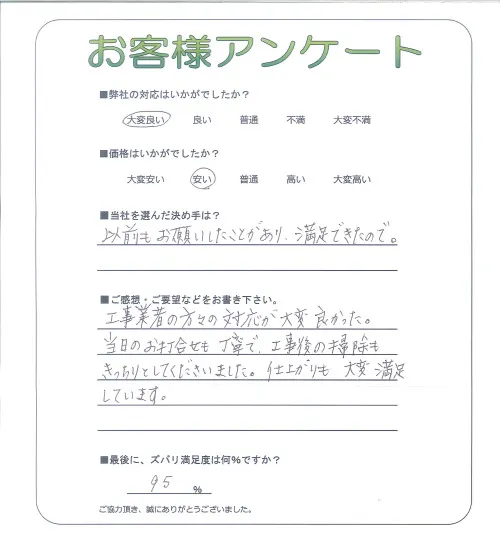 お客様アンケート
■弊社の対応はいかがでしたか？
大変良い 良い 普通 不満 大変不満
■価格はいかがでしたか？
大変安い 安い 普通 高い 大変高い
■当社を選んだ決め手は？
以前もお願いしたことがあり、満足できたので。
■ご感想・ご要望などをお書き下さい。
工事業者の方々の対応が大変良かった。
当日のお打合せも丁寧で、工事後の掃除も
きっちりとしてくださいました。仕上がりも大変満足
しています。
■最後に、ズバリ満足度は何％ですか？
95 ％
ご協力頂き、誠にありがとうございました。